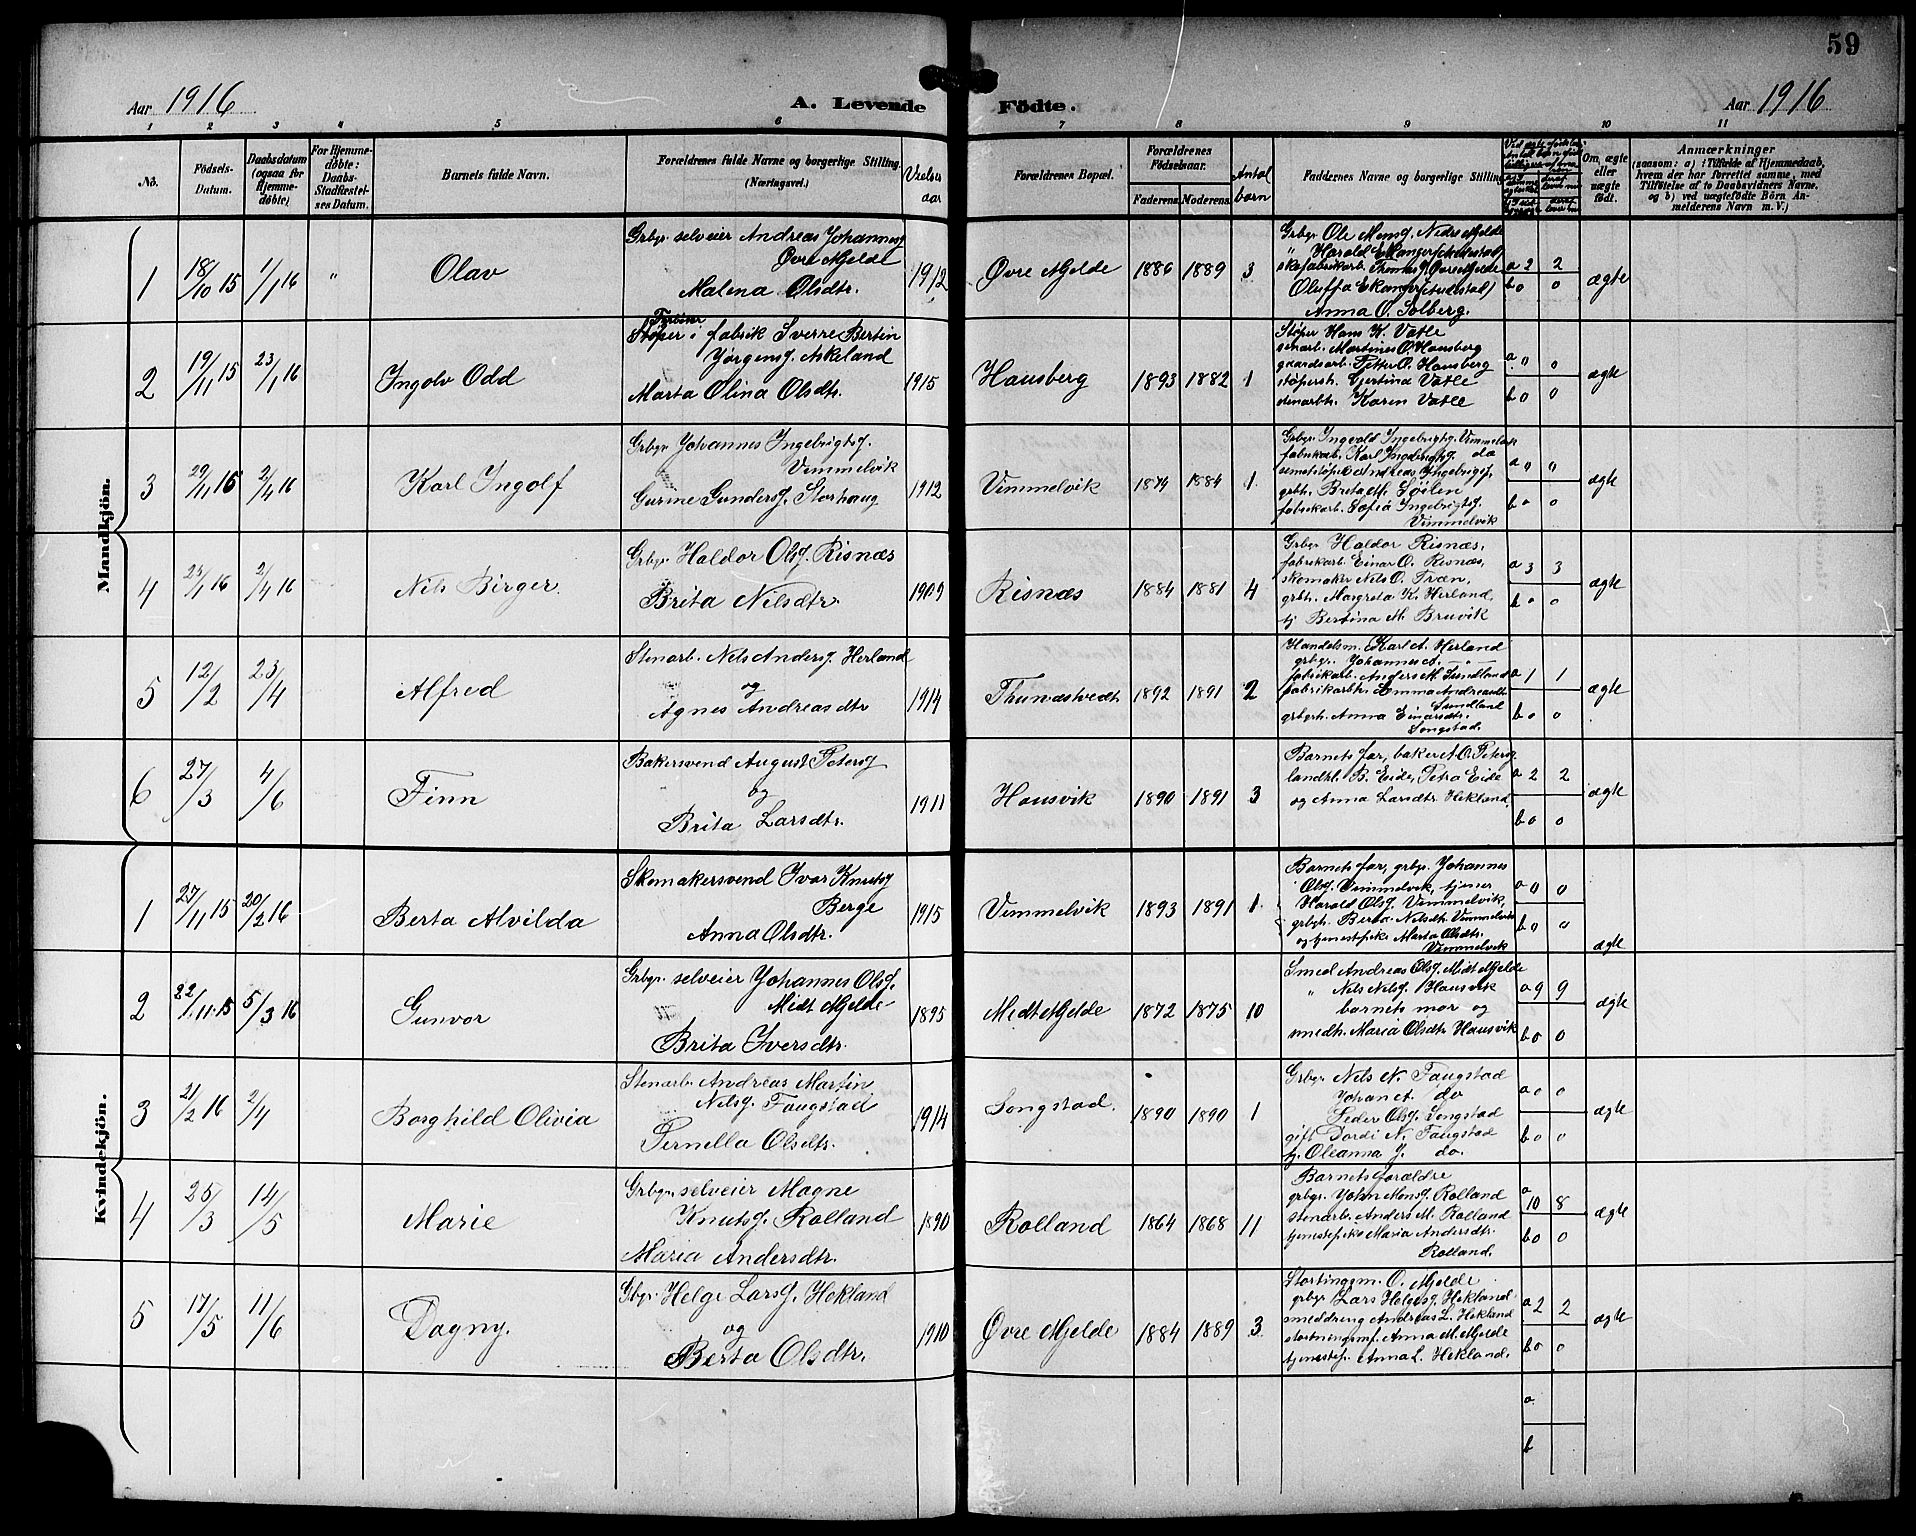 59
Aar 1916
A. Levende Födte.
Aar 1916
1 2 3 4 5 6 7 8 9 10 11
No.
Födsels-
Datum.
Daabsdatum
(ogsaa for
Hjemme-
döbte)
For Hjemme-
döbte:
Daabs-
Stadfæstel-
ses Datum.
Barnets fulde Navn.
Forældrenes fulde Navne og borgerlige Stilling
(Næringsvei.)
Vielses
aar
Forældrenes Bopæl.
Forældrenes
Födselsaar.
Faderens.
Moderens.
Antal
børn
Faddernes Navne og borgerlige Stilling
Om ægte
eller
uægte
födt.
Anmærkninger
(saasom: a) i Tilfælde af Hjemmedaab,
hvem der har forrettet samme, med
Tilföielse af to Daabsvidners Navne,
og b) ved uægtefödte Börn An-
melderens Navn m. V.)
Mandkjön.
1
18/10 15
1/1 16
"
Olav
Grbgr. selveier Andreas Johannesg
Øvre Mjelde
Malena Olsdtr.
1912
Øvre Mjelde
1886 1889 3
Grbgr. Ole Monsg. Nedre Mjelde
" Harald E Manger (Audestad)
skofabrikarb. Thomas J. Øvre Mjelde
Oluffa Ekanger (Audestad)
Anna O. Solberg.
a 2 2
b 0 0
ægte
2
19/11 15
23/1 16
Ingolv Odd
Støper i fabrik Sverre Bertin
Jörgensg. Askeland
Marta Olina Olsdtr.
1915
Hausberg
1893 1882 1
Støper Hans K. Vatle
stenarb. Martines O. Hausberg
gaardsarb. Petter O. Hausberg
støpersk. Gjertina Vatle
stenarbk. Karen Vatle
a 0 0
b 0 0
ægte
3
29/11 15
2/4 16
Karl Ingolf
Grbgr. Johannes Ingebrigtsg.
Vemmelvik
Gurine Gundersg. Storhaug
1912
Vimmelvik
1874 1884 1
Grbgr. Ingvald Ingebrigtsg. Vimmelvik
fabrikarb. Karl Ingebrigtsg. do
Andreas Ingebrigtsg.
grbk. Brita M. Søilen
fabrikarb. Sofia Ingebrigtsg.
Vimmelvik
a 0 0
b 0 0
ægte
4
2/4 16
Nils Birger.
Grbgr. Haldor Olsg. Risnæs
Brita Nilsdtr.
1909
Risnæs
1884 1881 4
Grbgr. Haldor Risnæs,
fabrikarb. Einar O. Risnæs,
skomaker Nils O. Træn,
grbk. Margreta K. Herland,
tj. Bertina M. Bruvik
a 3 3
b 0 0
ægte
5
12/2
23/4
Alfred
Stenarb. Nils Andersg. Herland
og
Agnes Andreasdtr
1914
Thunæstvedt
1892 1891 2
Handelsm. Karl A. Herland
grbgr. Johannes A. — " —
fabrikarb. Anders M. Sundland
fabrikarbk. Emma Andreasdt.
Sundland
grbgrk. Anna Einarsdtr.
Songstad.
a 1 1
b 0 0
ægte
6
27/3
4/6
Finn
Bakersvend August Petersg
og
Brita Larsdtr.
1911
Hausvik
1890 1891 3
Barnets far, baker A. O. Petersg
landhl. B. Eide, Petra Eide
og Anna Larsdtr. Hekland.
a 2 2
b 0 0
ægte
Kvindekjön.
1
27/11 15
20/2 16
Berta Alvilda
Skomakersvend Ivar Knutsg
Berge
Anna Olsdtr.
1915
Vemmelvik
1893 1891 1
Barnets far, grbgr. Johannes
Olsg. Vemmelvik, tjener
Harald Olsg. Vemmelvik,
grbgk. Berta Nilsdtr. Vemmelvik
og tjenestepike Marta Olsdtr.
Vemmelvik
a 0 0
b 0 0
ægte
2
22/11 15
5/3 16
Gunvor
Grbgr. selveier Johannes Olsg.
Midt Mjelde
Brita Iversdtr.
1895
Midt Mjelde
1872 1875 10
Smed Andreas Olsg. Midt Mjelde
" Nils Nilsg. Hausvik
barnets mor og
smedk. Maria Olsdtr Hausvik
a 9 9
b 0 0
ægte
3
21/2 16
2/4
Borghild Olivia
Stenarb. Andreas Martin
Nilsg. Faugstad
Pernella Olsdtr.
1914
Songstad.
1890 1890 1
Grbgr. Nils N. Faugstad
Johan A. do
Peder Olsg. Songstad
gift Dordi N. Faugstad
tj. Oleanna J. do.
a 0 0
b 0 0
ægte
4
25/3
14/5
Marie
Grbgr. selveier Magne
Knutsg. Rolland
Maria Andersdtr.
1890
Rolland
1864 1868 11
Barnets forældre
grbgr. John Monsg. Rolland
stenarb. Anders M. Rolland
tjenestepike Maria Andersdtr.
Rolland.
a 10 8
b 0 0
ægte
5
17/5
11/6
Dagny.
Gbgr. Helge Larsg. Hekland
og
Berta Olsdtr.
1910
Øvre Mjelde
1884 1889 3
Stortingsm. O. Mjelde
grbgr. Lars Helgesg. Hekland
smeddreng Andreas L. Hekland
stortningsmf. Anna M. Mjelde
tjenestep. Anna L. Hekland.
a 2 2
b 0 0
ægte
a
b